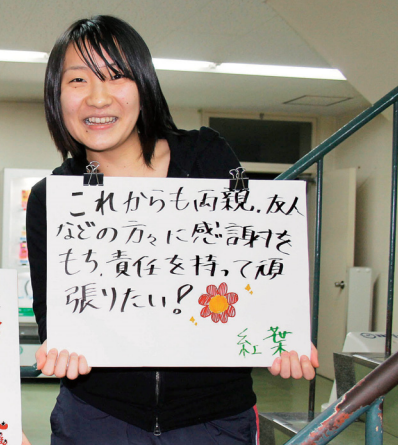 これからも両親、友人
などの方々に感謝を
もち、責任を持って頑
張りたい！
紅葉